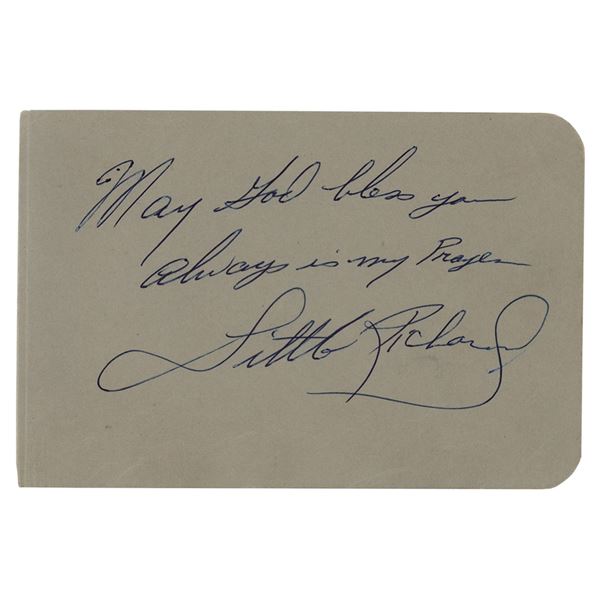 May God bless you
always is my Prayer
Little Richard